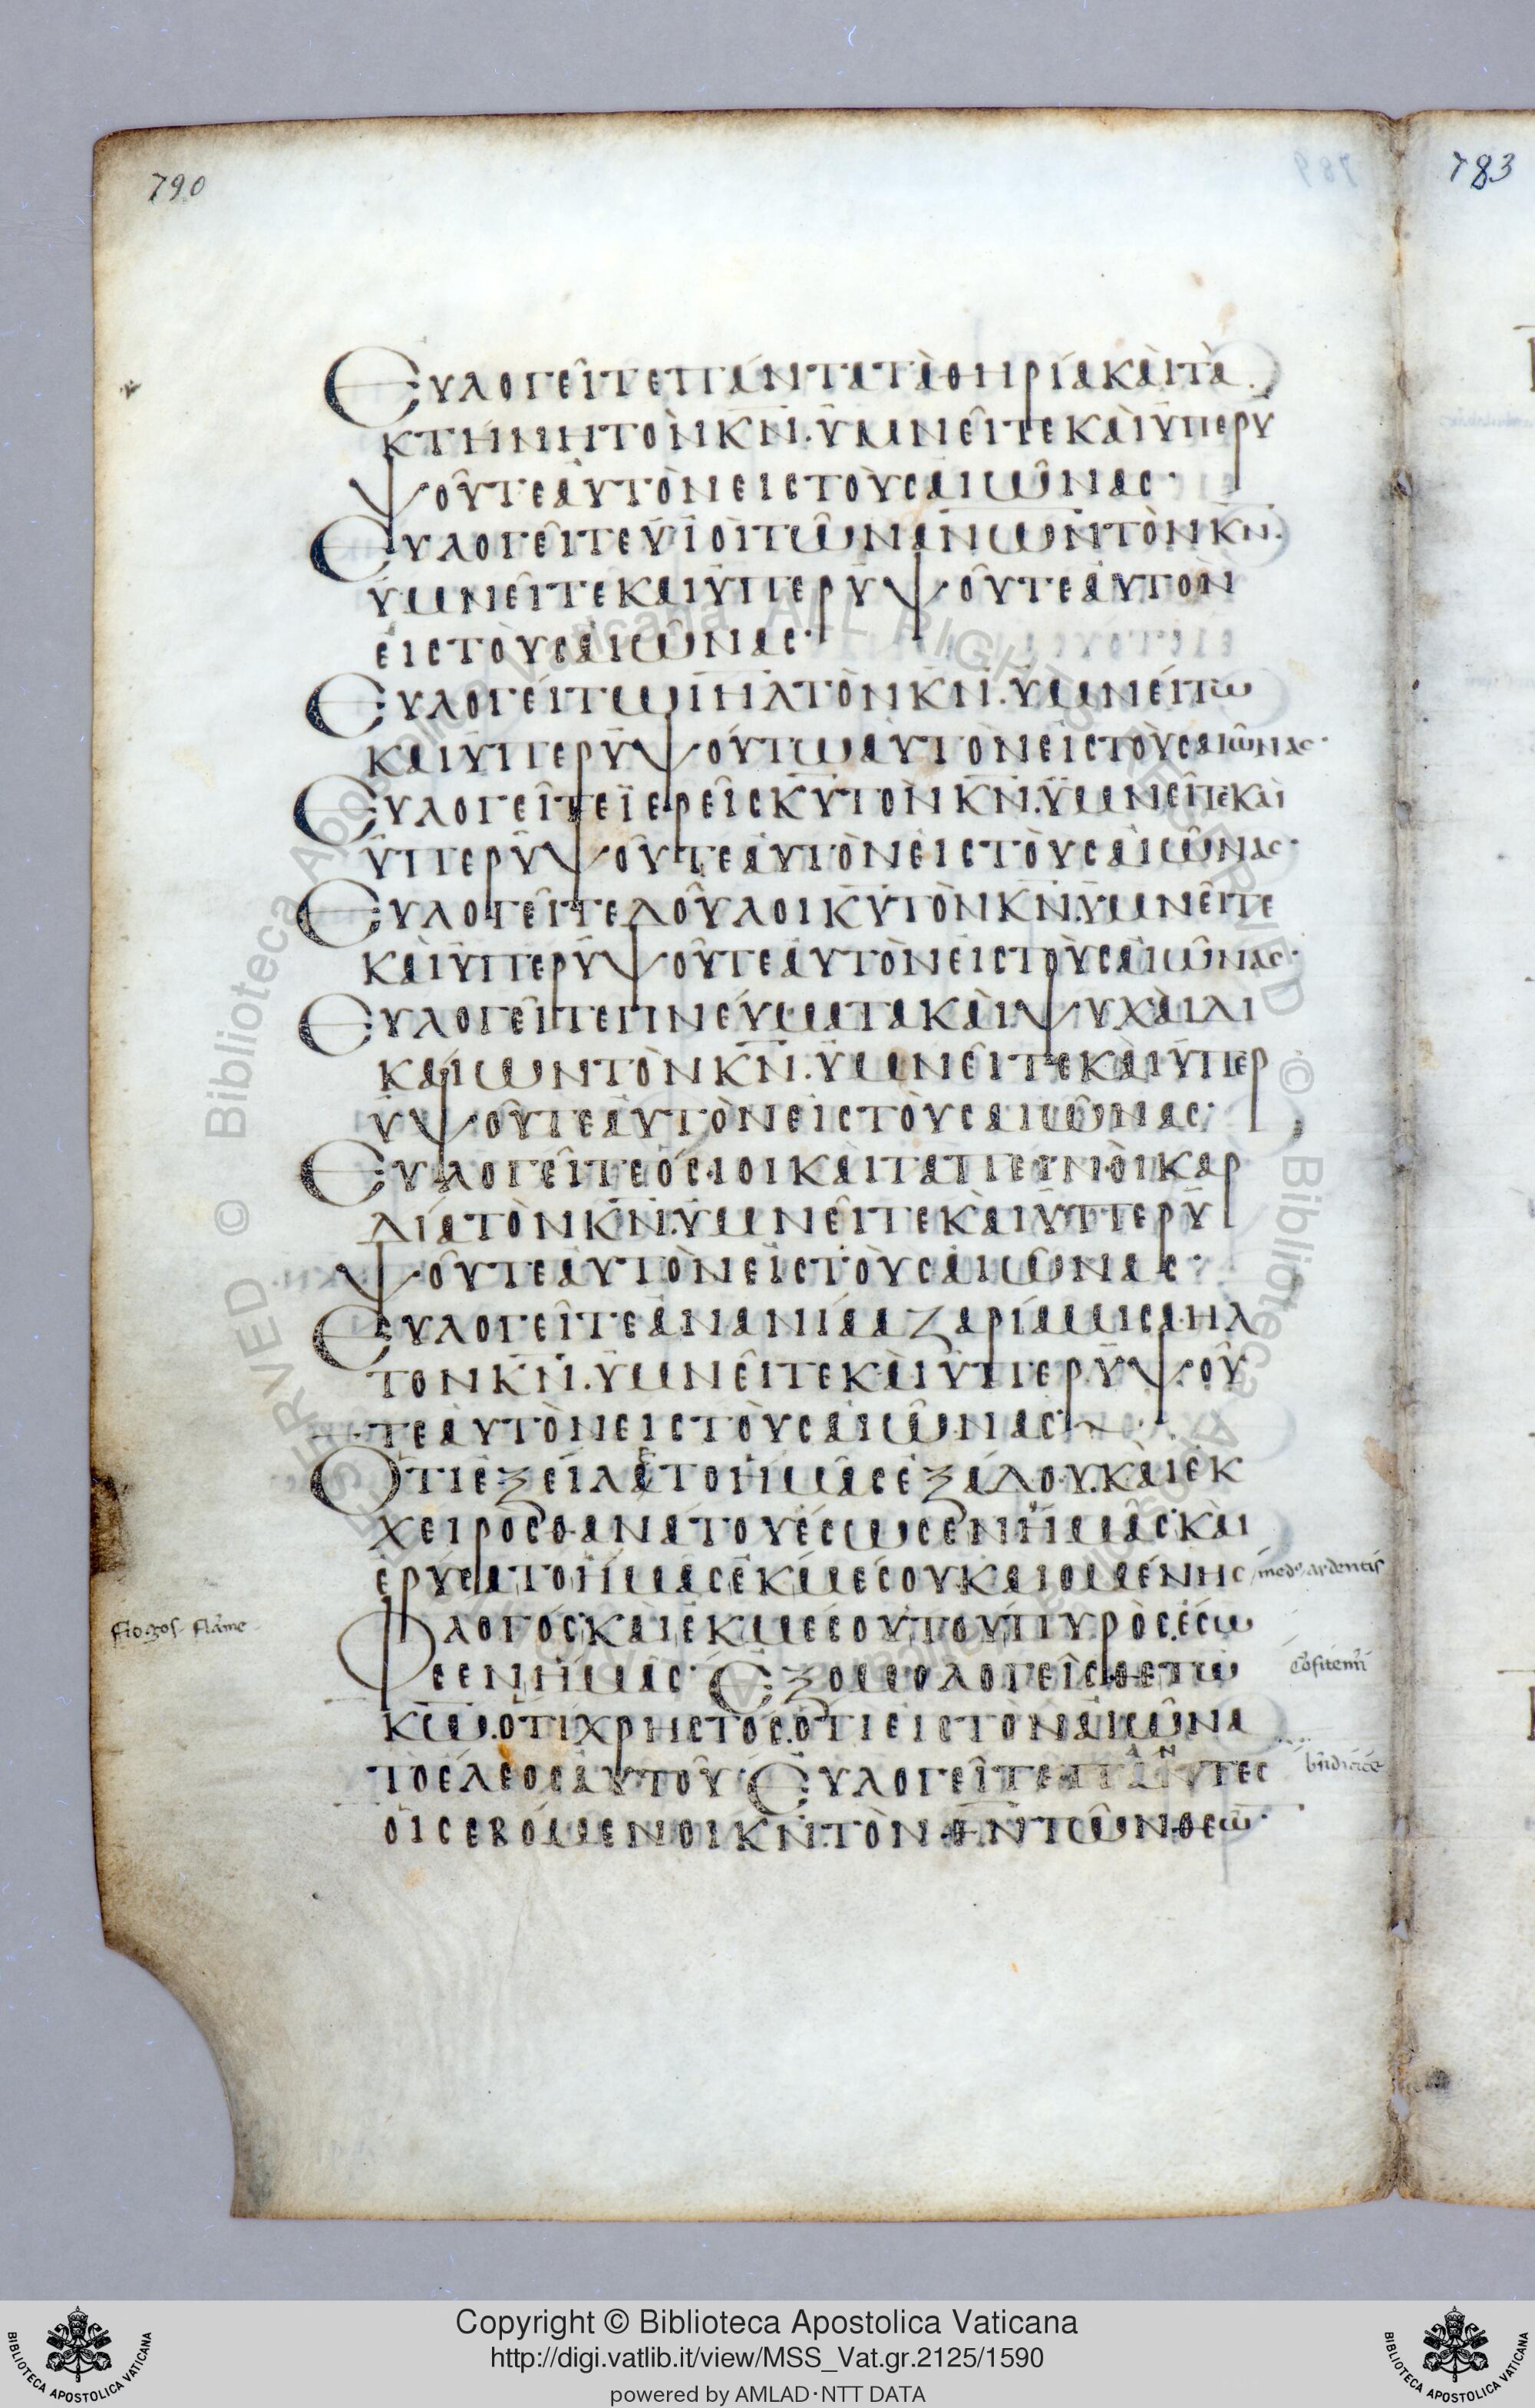 790
783
Εὐλογεῖτε πάντα τὰ θηρία καὶ τὰ
κτήνη τὸν κ̅ν̅. ὑμνεῖτε καὶ ὑπερυ
ψοῦτε αὐτὸν εἰς τοὺς αἰῶνας·
Εὐλογεῖτε υἱοὶ τῶν α̅ν̅ω̅ν̅ τὸν κ̅ν̅.
ὑμνεῖτε καὶ ὑπερυψοῦτε αὐτὸν
εἰς τοὺς αἰῶνας·
Εὐλογείτω ι̅η̅λ̅ τὸν κ̅ν̅. ὑμνείτω
καὶ ὑπερυψούτω αὐτὸν εἰς τοὺς αἰῶνας·
Εὐλογεῖτε ἱερεῖς κ̅υ̅ τὸν κ̅ν̅. ὑμνεῖτε καὶ
ὑπερυψοῦτε αὐτὸν εἰς τοὺς αἰῶνας·
Εὐλογεῖτε δοῦλοι κ̅υ̅ τὸν κ̅ν̅. ὑμνεῖτε
καὶ ὑπερυψοῦτε αὐτὸν εἰς τοὺς αἰῶνας·
Εὐλογεῖτε πνεύματα καὶ ψυχαὶ δι
καίων τὸν κ̅ν̅. ὑμνεῖτε καὶ ὑπερ
υψοῦτε αὐτὸν εἰς τοὺς αἰῶνας·
Εὐλογεῖτε ὅσιοι καὶ ταπεινοὶ καρ
δία τὸν κ̅ν̅. ὑμνεῖτε καὶ ὑπερυ
ψοῦτε αὐτὸν εἰς τοὺς αἰῶνας·
Εὐλογεῖτε ἀνανία αζαρία μισαὴλ
τὸν κ̅ν̅. ὑμνεῖτε καὶ ὑπερυψοῦ
τε αὐτὸν εἰς τοὺς αἰῶνας·
Ὅτι ἐξείλετο ἡμᾶς ἐξ ἅδου. καὶ ἐκ
χειρὸς θανάτου ἔσωσεν ἡμᾶς· καὶ
ἐρύσατο ἡμᾶς ἐκ μέσου καιομένης
φλογός· καὶ ἐκ μέσου τοῦ πυρὸς. ἔσω
σεν ἡμᾶς· Ἐξομολογεῖσθε τῶ
κ̅ω̅. ὅτι χρηστός. ὅτι εἰς τὸν αἰῶνα
τὸ ἔλεος αὐτοῦ· Εὐλογεῖτε πάντες
οἱ σεβόμενοι κ̅ν̅. τὸν θ̅ν̅ τῶν θεῶ̅·
flogos flame
ardentis
Copyright © Biblioteca Apostolica Vaticana
http://digi.vatlib.it/view/MSS_Vat.gr.2125/1590
powered by AMLAD·NTT DATA
BIBLIOTECA APOSTOLICA VATICANA
BIBLIOTECA APOSTOLICA VATICANA